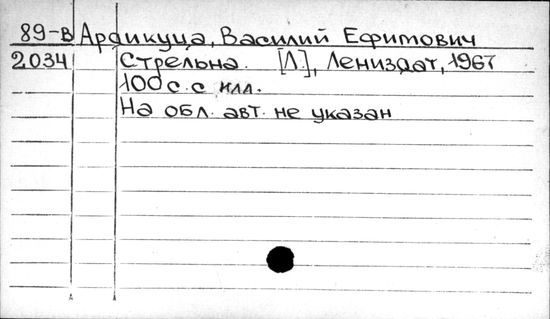 89-В Ардикуца, Василий Ефимович
2034 Стрельна. [Л], Лениздат, 1967
100 с. с илл.
На обл. авт. не указан